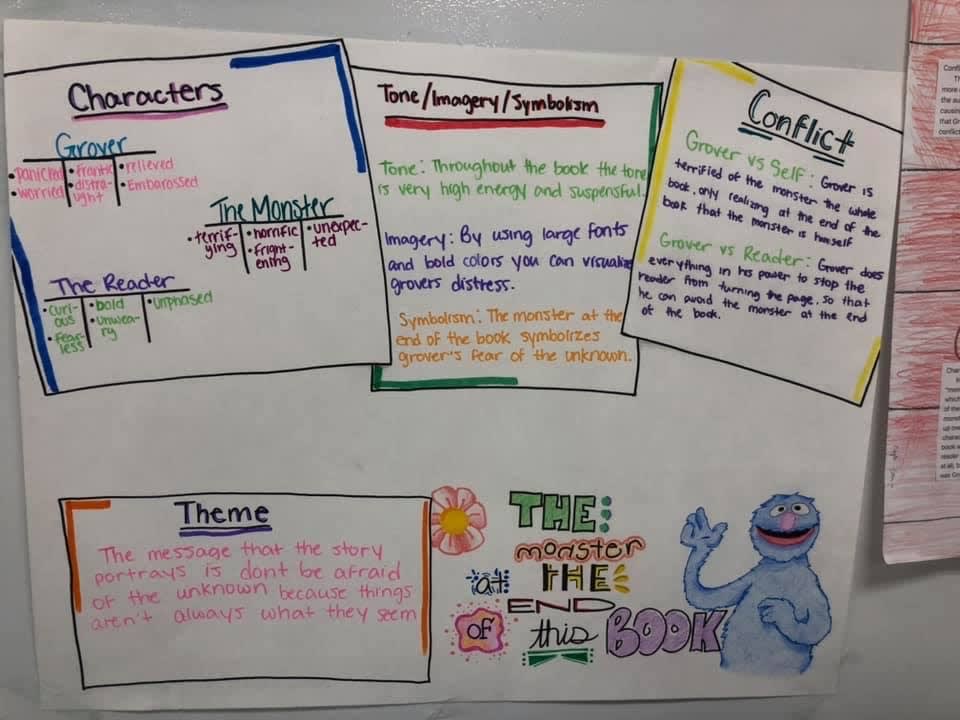 Characters
Grover
•panicked •frantic •relieved
•worried •distra- •Embarossed
ught
The Monster
•terrif- •horrific •unexpec-
ying •fright- ted
ening
The Reader
•curi- •bold •unphased
ous •unwea-
•fear- ry
less
Tone/Imagery/Symbolism
Tone: Throughout the book the tone
is very high energy and suspensful.
Imagery: By using large fonts
and bold colors you can visualize
grovers distress.
Symbolism: The monster at the
end of the book symbolizes
grover's fear of the unknown.
Conflict
Grover vs Self: Grover is
terrified of the monster the whole
book, only realizing at the end of the
book that the monster is himself
Grover vs Reader: Grover does
everything in his power to stop the
reader from turning the page, so that
he can avoid the monster at the end
of the book.
Theme
The message that the story
portrays is dont be afraid
of the unknown because things
aren't always what they seem
THE:
monster
at THE
END
OF this BOOK